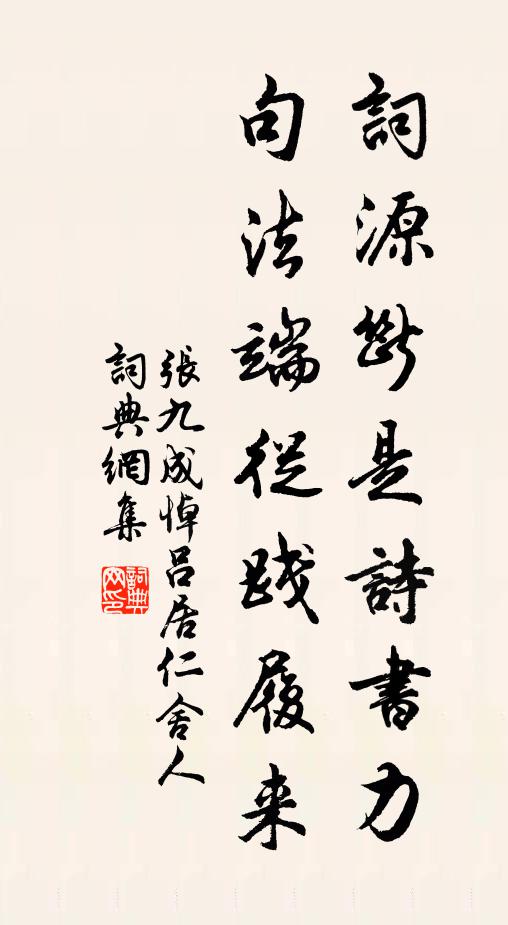 詞源斷是詩書力
句法端從踐履来
張九成悼呂居仁舍人
詞典網集
詞典
網印